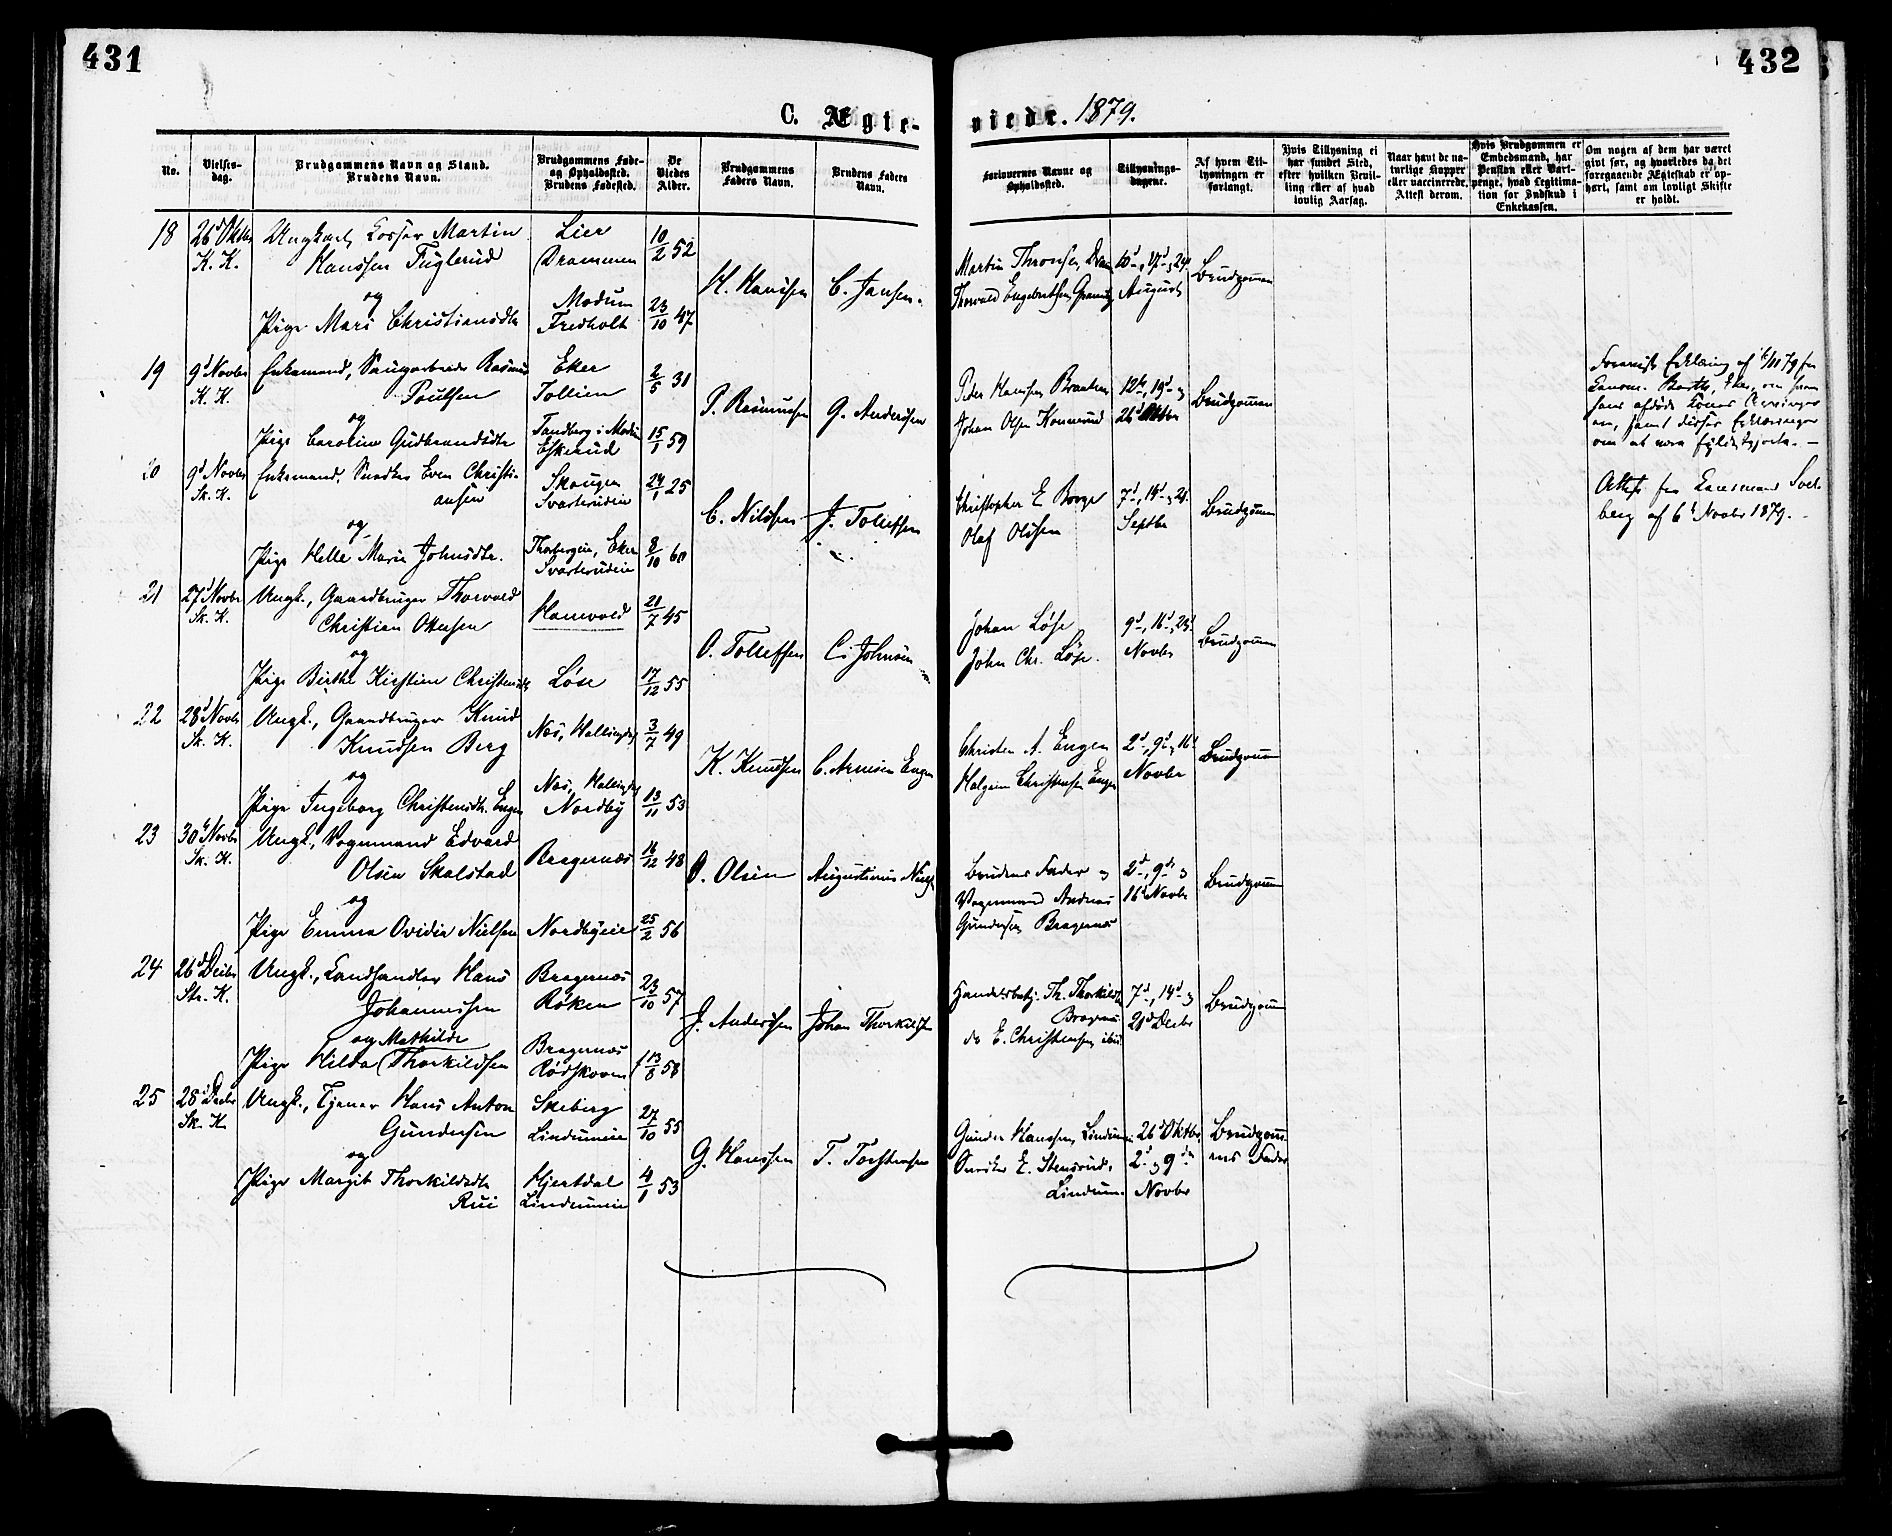 431
432
C. Ægte-
viede. 1879.
No.
Vielses-
dag.
Brudgommens Navn og Stand.
Brudens Navn.
Brudgommens Føde-
og Opholdssted.
Brudens Fødested.
De
Viedes
Alder.
Brudgommens
Faders Navn.
Brudens Faders
Navn.
Forlovernes Navne og
Opholdssted.
Tillysnings-
dagene.
Af hvem Til-
lysningen er
forlangt.
Hvis Tillysning ei
har fundet Sted,
efter hvilken Bevil-
ling eller af hvad
lovlig Aarsag.
Naar havt de na-
turlige Kopper
eller vaccinerede.
Attest derom.
Hvis Brudgommen er
Embedsmand, har
Pension eller Vart-
penge, hvad Legitima-
tion for Indskud i
Enkekassen.
Om nogen af dem har været
givt før, og hvorledes da det
foregaaende Ægteskab er op-
hørt, samt om lovligt Skifte
er holdt.
18
26d Oktbr
K. K.
Ungkarl, Losser Martin
Hanssen Fuglerud
og
Pige Mari Christiansdtr
Lier
Drammen
Modum
Fredholt
10/2 52
23/10 47
H. Hanssen
C. Jansen
Martin Thronsen, Dram
Thorvald Engebretsen,
10d, 17d, 24
August
Brudgommen
19
9d Novbr
K. K.
Enkemand, Rasmus
Poulsen
og
Pige Caroline Gudbrandsdtr
Eker
Tollien
Tandberg i Modum
Eskerud
2/5 31
15/1 59
P. Rasmussen
G. Anderssen
Peder Hanssen Braaten
Johan Olsen Konnerud
12te, 19d og
26d Oktbr
Brudgommen
Foreviist Erklæring af 6/11 79 fra
Lensm. Barth, Eker, om hvem
hans afdøde Kones Arvinger
ere, samt disses Erklæringer
om at være fyldestgjorte. —
20
9d Novbr
Sk. K.
Enkemand, Snedker Even Christi-
ansen
og
Pige Helle Marie Johnsdtr.
Skougen
Svarterudeie
Thorbergeie, Eker
Svarterudeie
24/1 25
8/10 60
C. Nilssen
J. Tollefsen
Christopher E. Borge
Olaf Olssen
7d, 14d, 21
Septbr
Brudgommen
Attest fra Lensmand Solb-
berg af 6t Novbr 1879.
21
27d Novbr
Sk. K.
Ungk., Gaardbruger Thorvald
Christian Ottersen
og
Pige Birthe Kirstine Christensdtr
Hanevold
Løse
21/7 45
17/12 55
O. Tollefsen
C. Johnsen
Johan Løse
John Chr. Løse.
9d, 16d, 23d
Novbr
Brudgommen
22
28d Novbr
Sk. K.
Ungk., Gaardbruger Knud
Knudsen Berg
og
Pige Ingeborg Christensdtr. Engen
Næs, Hallingdal
Næs, Hallingdal
Nordby
3/7 49
13/11 53
K. Knudsen
C. Arnesen Engen
Christen A. Engen
Halgrim Christensen Engen
2d, 9d, 16d
Novbr
Brudgommen
23
30t Novbr
Sk. K.
Ungk., Vognmand Edvard
Olsen Skalstad
og
Pige Emma Ovidia Nielsen
Bragernæs
Nordbyeie
16/12 48
25/2 56
O. Olsen
Augustinus Niels
Brudens Fader og
Vognmand Andreas
Gundersen Bragernæs
2d, 9d og
16d Novbr
Brudgommen
24
26d Decbr
Str. K.
Ungk., Landhandler Hans
Johannessen
og Mathilde
Pige Hilda (Thorkildsen
Bragernæs
Røken
Bragernæs
Rødskoven
23/10 57
13/8 58
J. Anderssen
Johan Thorkildsen
Handelsbetj. Th. Thorkilds
Bragernæs
do E. Christensen ibid
7d, 14d og
21d Decbr
Brudgommen
25
28d Decbr
Sk. K.
Ungk., Tjener Hans Anton
Gundersen
og
Pige Margit Thorkildsdtr
Rui
Skeberg
Lindumeie
Hjertdal
Lindumeie
27/10 55
4/1 53
G. Hanssen
T. Torstensen
Gunder Hanssen, Lindumeie
Snedker E. Stensrud,
Lindum.
26d Oktbr
2d og 9de
Novbr
Brudgomm-
ens Fader